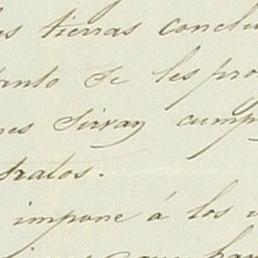 s tierras conclu
anto se les pro
nes sirvan cump
tratos.
impone á los i